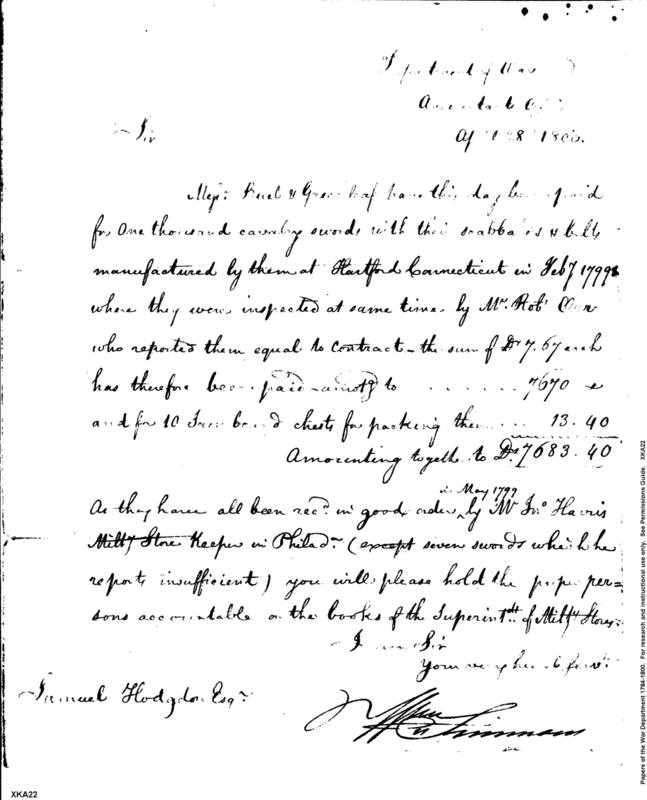 Department of War
Accountants Office
April 28 1800.
Sir
Messrs. Buel & Greenleaf have this day been paid
for One thousand cavalry swords with their scabbards & belts
manufactured by them at Hartford Connecticut in Feby 1799
where they were inspected at same time by Mr. Robt Orr
who reported them equal to contract - the sum of Drs 7.67 each
has therefore been paid - amotg to ...... 7670
and for 10 Iron bound chests for packing them ... 13.40
Amounting together to Ds. 7683.40
in May 1799
As they have all been recd. in good order by Mr Jno Harris
Milty Store Keeper in Philada (except seven swords which he
reports insufficient) you will please hold the proper per=
sons accountable on the books of the Superintdt of Milty Stores.
I am Sir
Your very hue. Serv.
Samuel Hodgdon Esqr.
Wm Simmons
XKA22
Papers of the War Department 1784-1800. For research and instructional use only. See Permissions Guide. XKA22